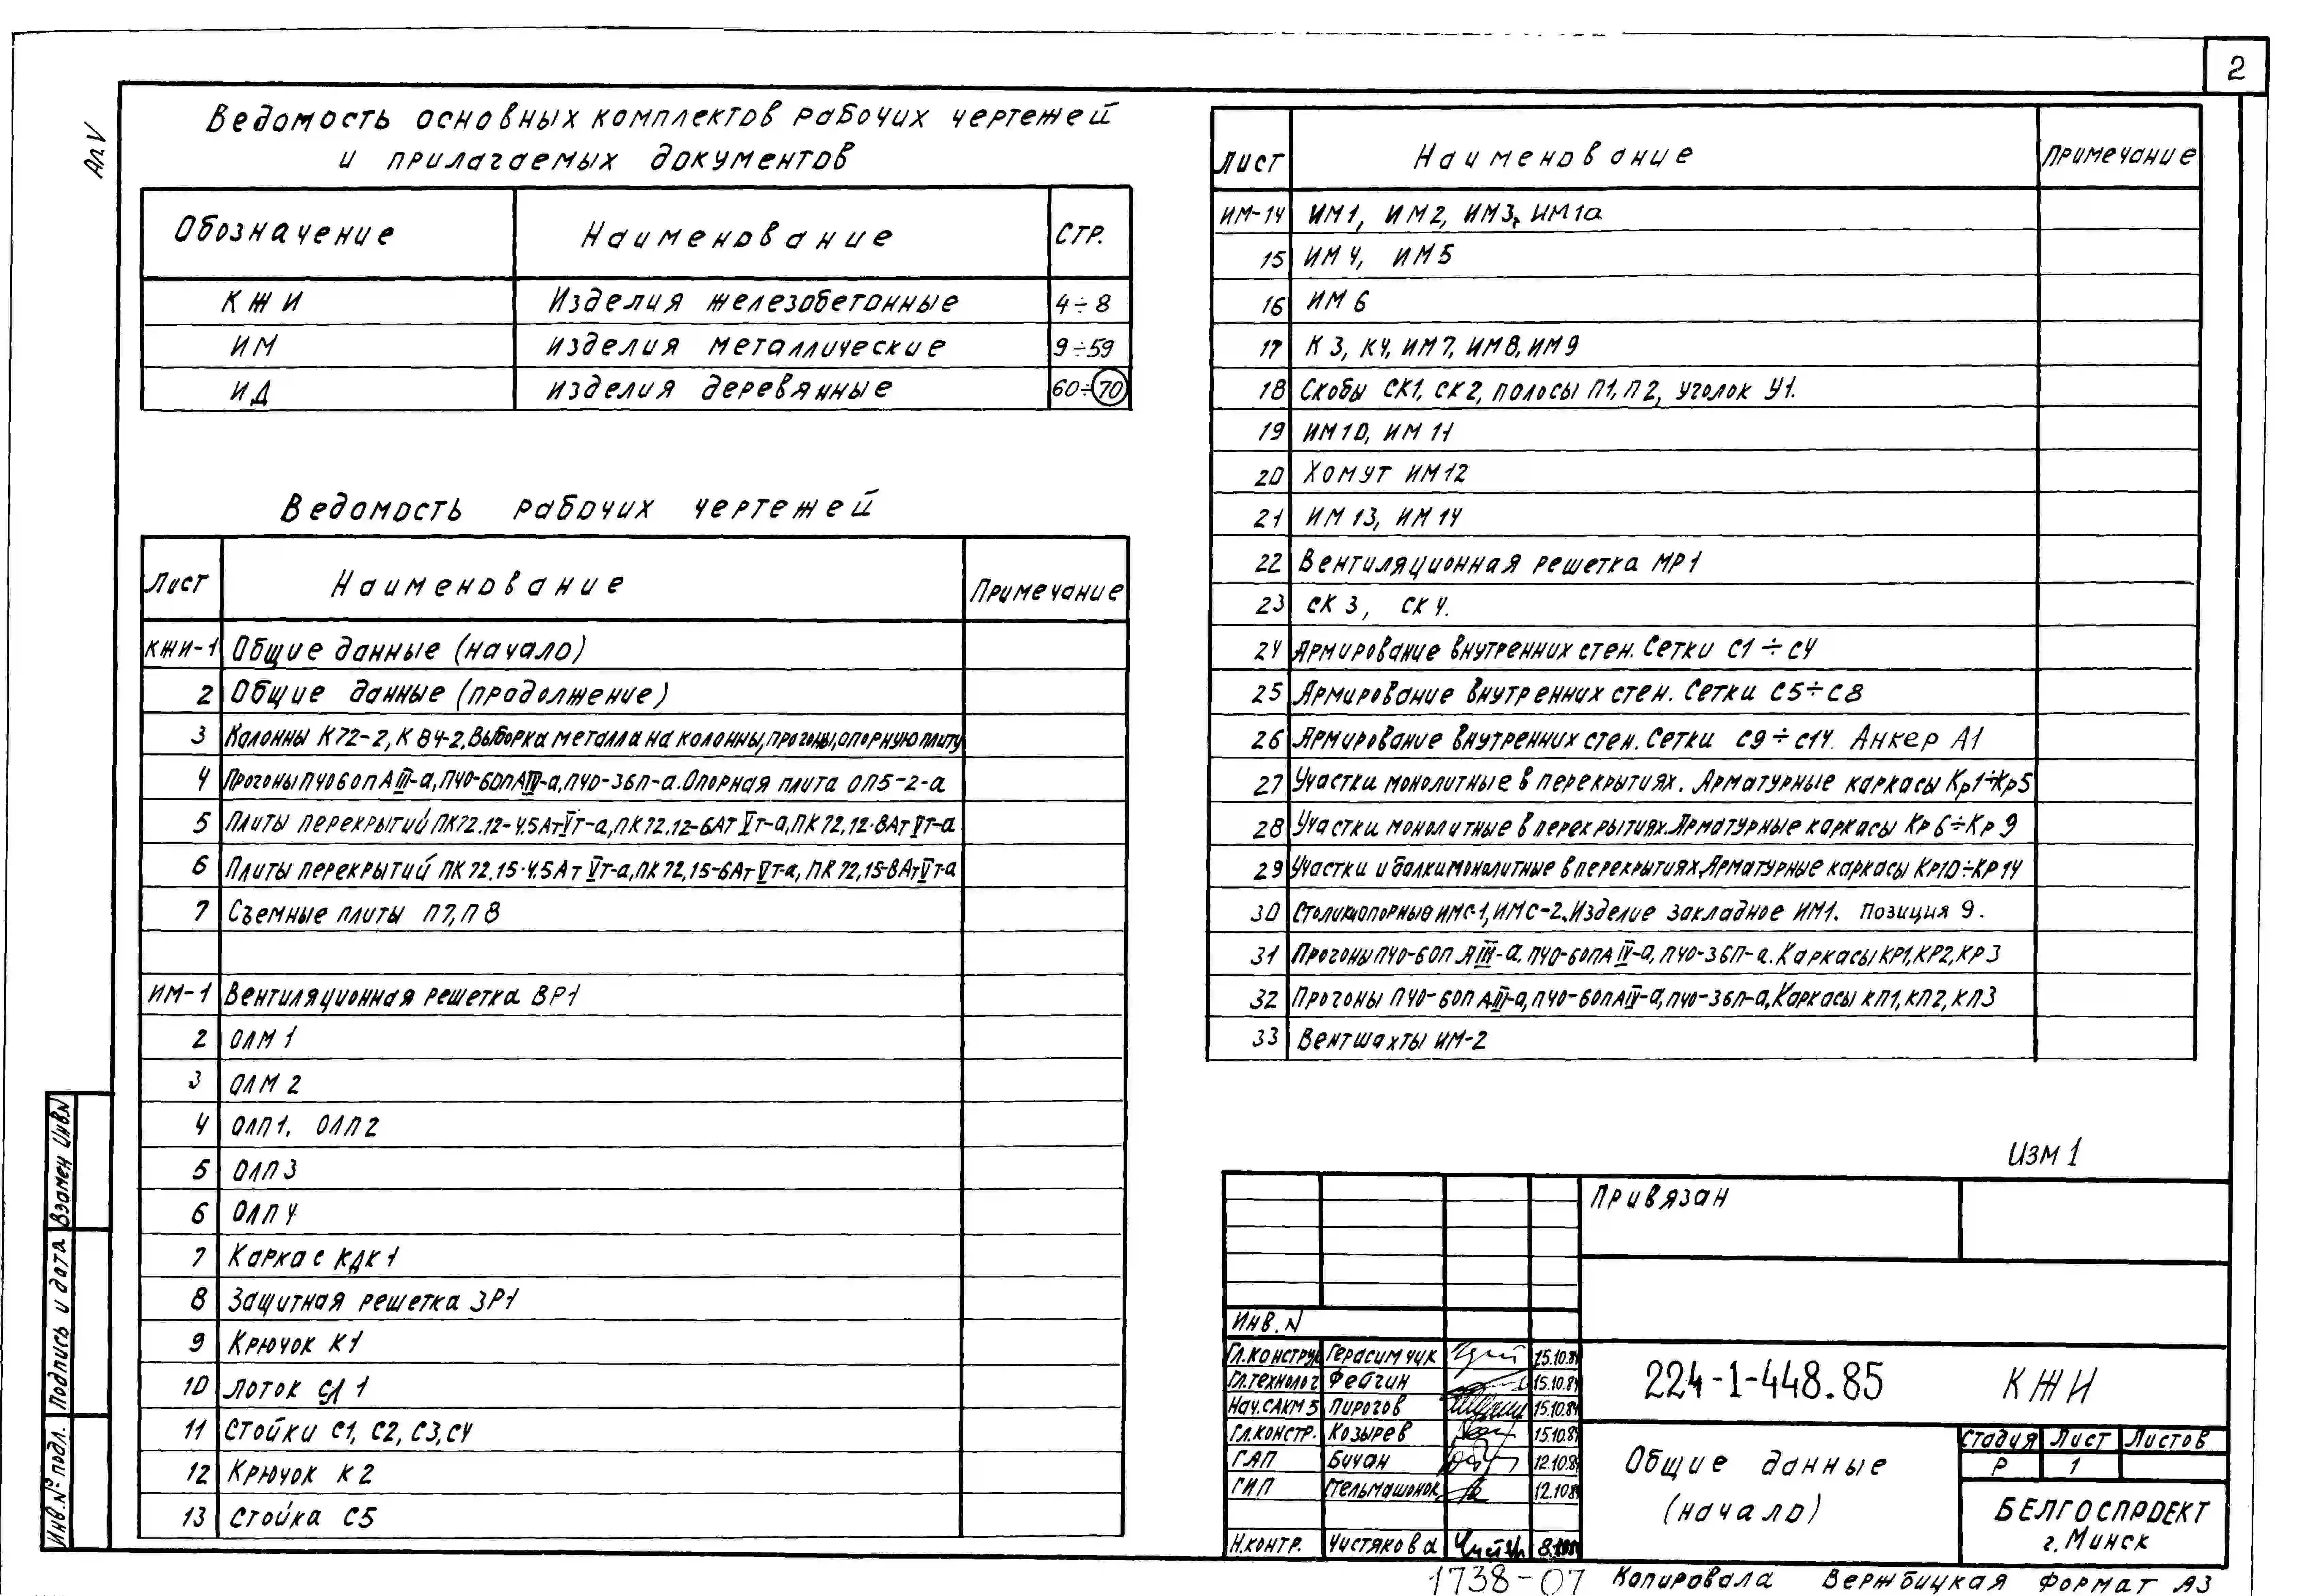 2
Ал V
Ведомость основных комплектов рабочих чертежей
и прилагаемых документов
Обозначение Наименование Стр.
КЖИ Изделия железобетонные 4÷8
ИМ изделия металлические 9÷59
ИД изделия деревянные 60÷70
Ведомость рабочих чертежей
Лист Наименование Примечание
КЖИ-1 Общие данные (начало)
2 Общие данные (продолжение)
3 Колонны К72-2, К84-2. Выборка металла на колонны, прогоны, опорную плиту
4 Прогоны ПЧ060пАIII-а, ПЧ0-60пАIV-а, ПЧ0-36п-а. Опорная плита ОП5-2-а
5 Плиты перекрытий ПК72.12-4.5АтVт-а, ПК72.12-6АтVт-а, ПК72.12-8АтVт-а
6 Плиты перекрытий ПК72.15-4.5АтVт-а, ПК72.15-6АтVт-а, ПК72.15-8АтVт-а
7 Съемные плиты П7, П8
ИМ-1 Вентиляционная решетка ВР1
2 ОЛМ1
3 ОЛМ2
4 ОЛП1. ОЛП2
5 ОЛП3
6 ОЛП4
7 Каркас КДК1
8 Защитная решетка ЗР1
9 Крючок К1
10 Лоток СЛ1
11 Стойки С1, С2, С3, С4
12 Крючок К2
13 Стойка С5
Лист Наименование Примечание
ИМ-14 ИМ1, ИМ2, ИМ3, ИМ1а
15 ИМ4, ИМ5
16 ИМ6
17 К3, К4, ИМ7, ИМ8, ИМ9
18 Скобы СК1, СК2, полосы П1, П2, уголок У1.
19 ИМ10, ИМ11
20 Хомут ИМ12
21 ИМ13, ИМ14
22 Вентиляционная решетка МР1
23 СК3, СК4.
24 Армирование внутренних стен. Сетки С1÷С4
25 Армирование внутренних стен. Сетки С5÷С8
26 Армирование внутренних стен. Сетки С9÷С14. Анкер А1
27 Участки монолитные в перекрытиях. Арматурные каркасы Кр1÷Кр5
28 Участки монолитные в перекрытиях. Арматурные каркасы Кр6÷Кр9
29 Участки и балки монолитные в перекрытиях. Арматурные каркасы Кр10÷Кр14
30 Столики опорные ИМС-1, ИМС-2. Изделие закладное ИМ1. Позиция 9.
31 Прогоны ПЧ0-60п АIII-а, ПЧ0-60пАIV-а, ПЧ0-36п-а. Каркасы КР1, КР2, КР3
32 Прогоны ПЧ0-60пАIII-а, ПЧ0-60пАIV-а, ПЧ0-36п-а, Каркасы КП1, КП2, КП3
33 Вентшахты ИМ-2
Изм 1
Привязан
Инв. N
Гл.конструк Герасимчик 15.10.84
Гл.технолог Фейгин 15.10.84
Нач.САКМ5 Пирогов 15.10.84
Гл.констр. Козырев 15.10.84
ГАП Бичан 12.10.84
ГИП Стельмашонок 12.10.84
Н.контр. Чистякова
224-1-448.85 КЖИ
Общие данные
(начало)
Стадия Лист Листов
Р 1
БЕЛГОСПРОЕКТ
г. Минск
Взамен Инв.N
Подпись и дата
Инв.№ подл.
1738-07 Копировала Вержбицкая Формат А3